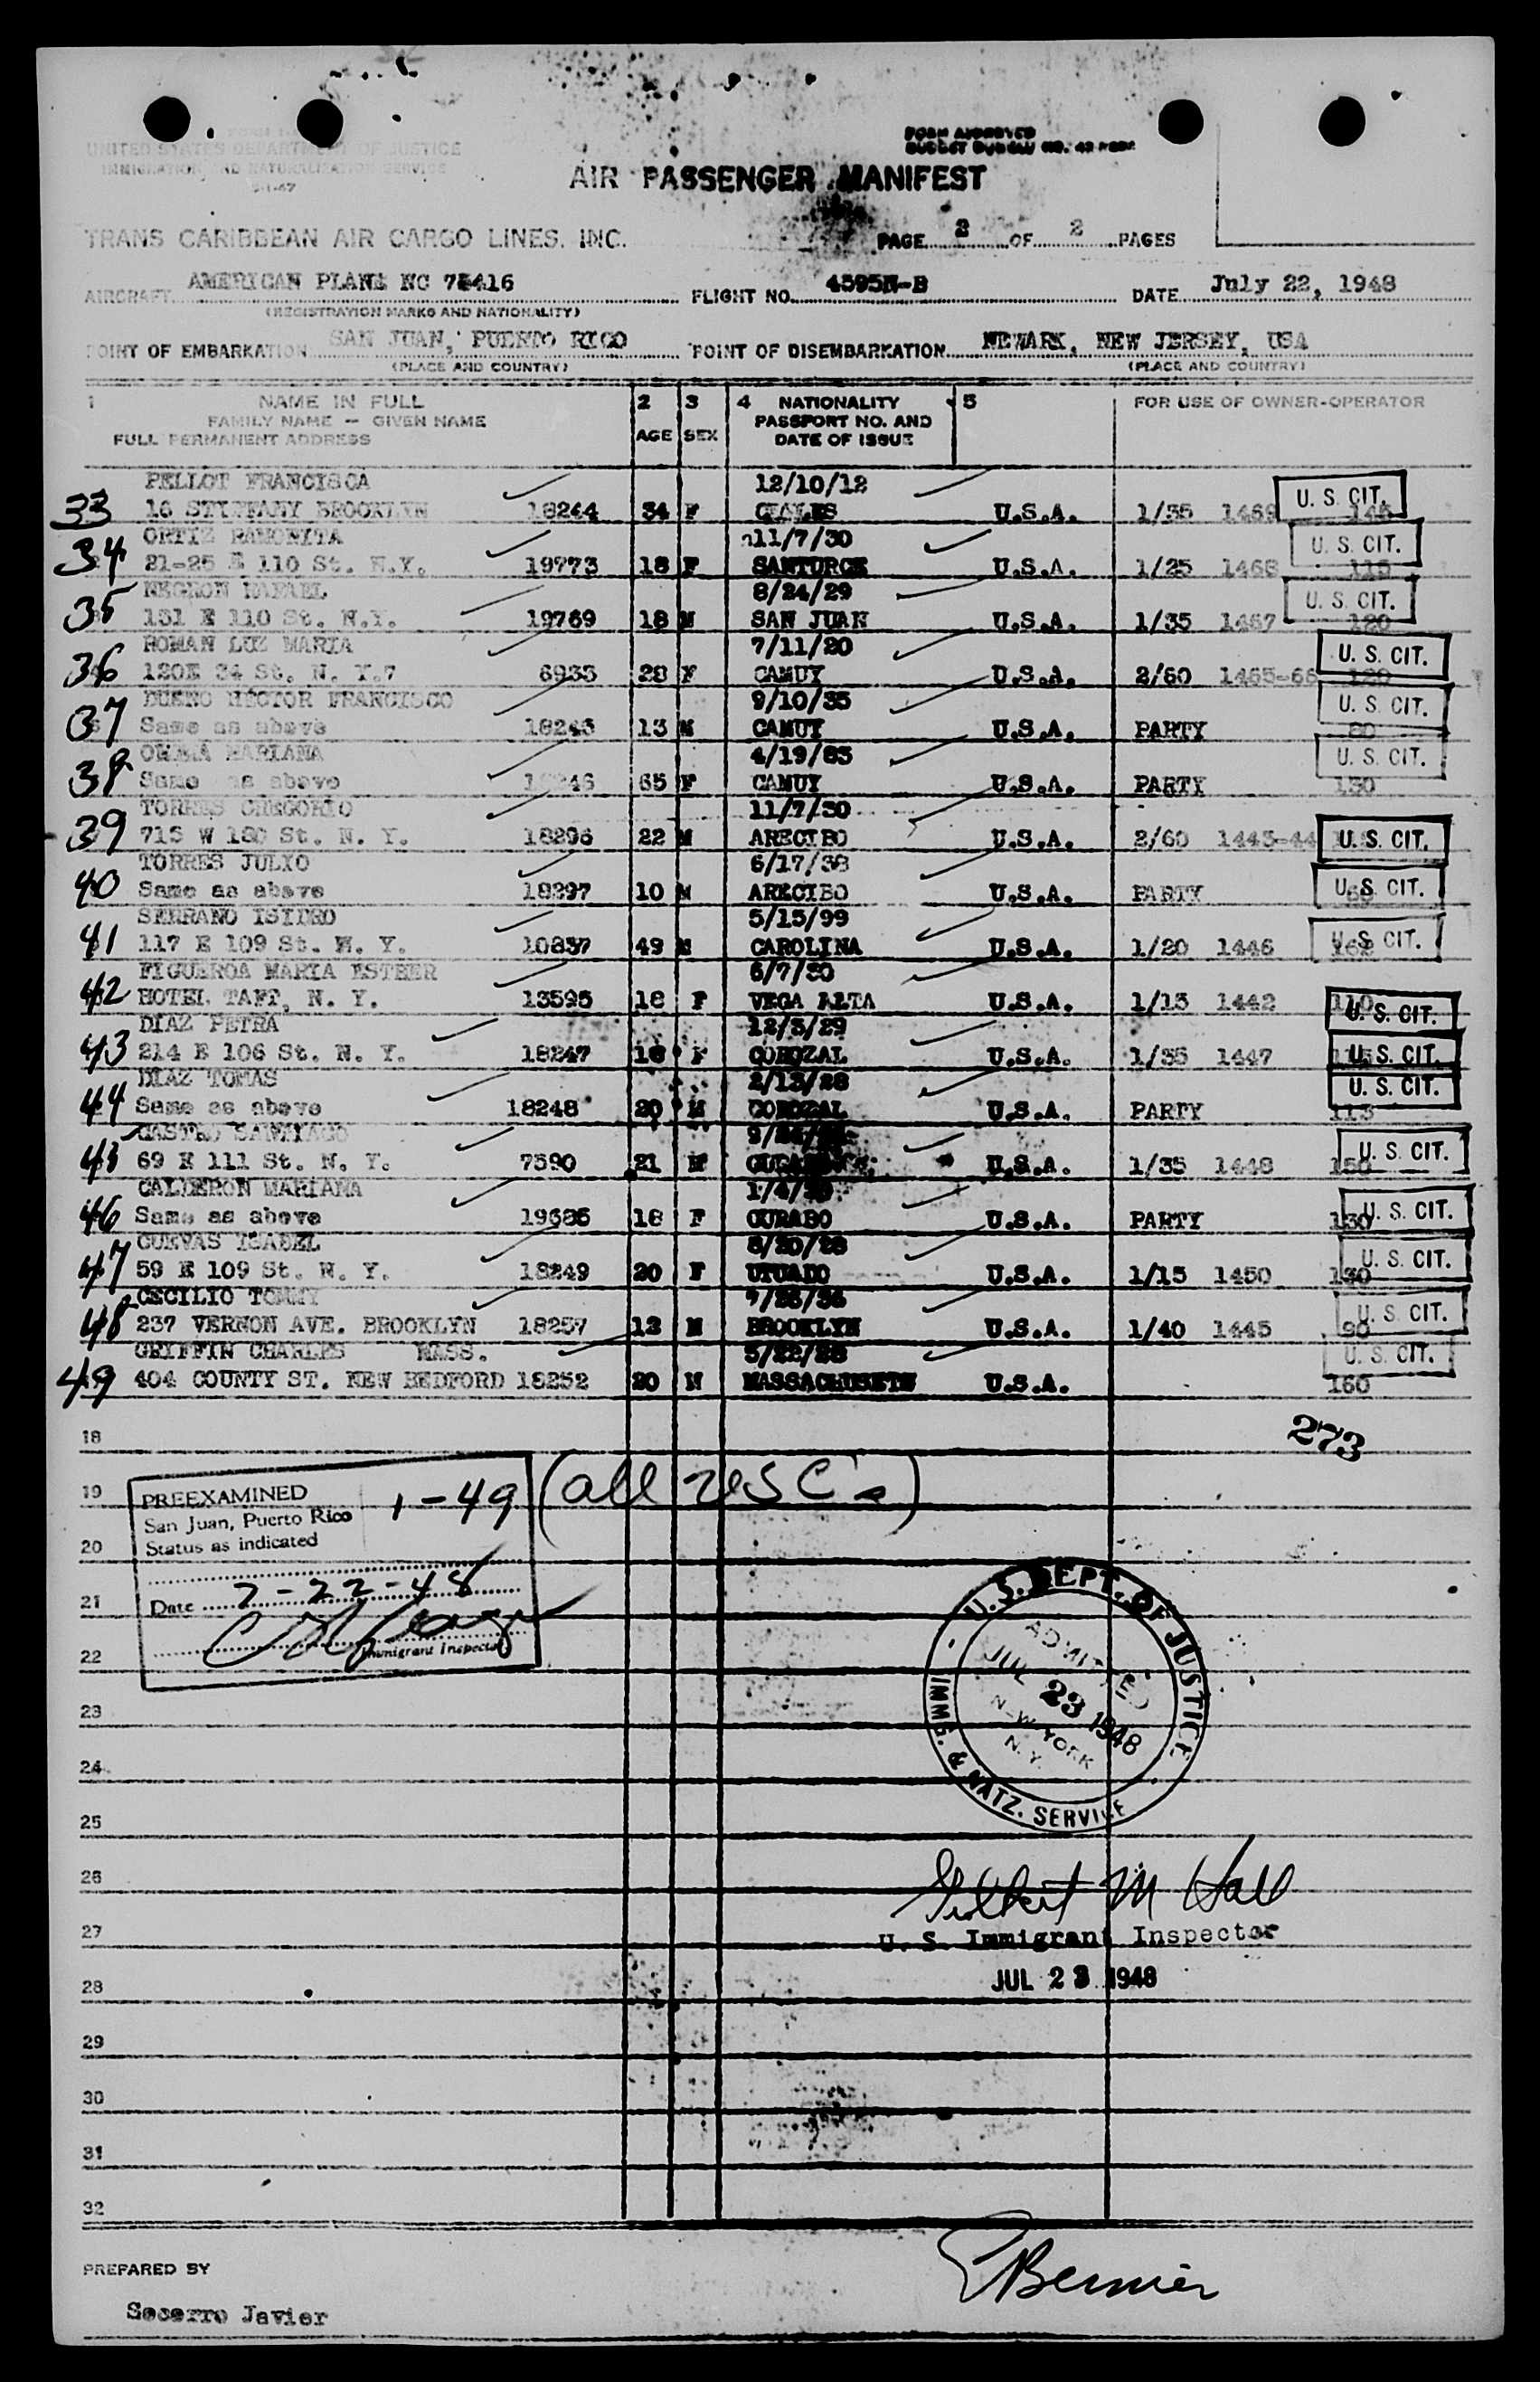 UNITED STATES DEPARTMENT OF JUSTICE
IMMIGRATION AND NATURALIZATION SERVICE
FORM APPROVED
AIR PASSENGER MANIFEST
TRANS CARIBBEAN AIR CARGO LINES, INC.
PAGE 2 OF 2 PAGES
AIRCRAFT AMERICAN PLANE NC FLIGHT NO. 4595N-B DATE July 22, 1948
(REGISTRATION MARKS AND NATIONALITY)
POINT OF EMBARKATION SAN JUAN, PUERTO RICO POINT OF DISEMBARKATION NEWARK, NEW JERSEY, USA
(PLACE AND COUNTRY) (PLACE AND COUNTRY)
1 NAME IN FULL 2 3 4 NATIONALITY 5 FOR USE OF OWNER-OPERATOR
FAMILY NAME - GIVEN NAME PASSPORT NO. AND
FULL PERMANENT ADDRESS AGE SEX DATE OF ISSUE
PELLOT FRANCISCA 12/10/12
33 16 BROOKLYN 18244 34 F CIALES U.S.A. 1/35 1469 U. S. CIT.
ORTIZ RAMONITA 11/7/30
34 21-25 E 110 St. N.Y. 19773 18 F SANTURCE U.S.A. 1/25 1468 115 U. S. CIT.
NEGRON RAFAEL 8/24/29
35 151 E 110 St. N.Y. 19769 18 M SAN JUAN U.S.A. 1/35 1467 120 U. S. CIT.
ROMAN LUZ MARIA 7/11/20
36 120E 34 St. N. Y.7 6935 28 F CAMUY U.S.A. 2/60 1465-66 120 U. S. CIT.
DUENO HECTOR FRANCISCO 9/10/35
37 Same as above 18245 13 M CAMUY U.S.A. PARTY 80 U. S. CIT.
MARIANA 4/19/83
38 Same as above 18246 65 F CAMUY U.S.A. PARTY 130 U. S. CIT.
TORRES GREGORIO 11/7/30
39 715 W 180 St. N. Y. 18296 22 M ARECIBO U.S.A. 2/60 1443-44 U. S. CIT.
TORRES JULIO 6/17/38
40 Same as above 18297 10 M ARECIBO U.S.A. PARTY U. S. CIT.
SERRANO ISIDRO 5/15/99
41 117 E 109 St. N. Y. 10837 49 M CAROLINA U.S.A. 1/20 1446 162 U. S. CIT.
FIGUEROA MARIA ESTHER 6/7/30
42 HOTEL TAFT, N. Y. 13595 18 F VEGA ALTA U.S.A. 1/15 1442 110 U. S. CIT.
DIAZ PETRA 12/3/29
43 214 E 106 St. N. Y. 18247 18 F COROZAL U.S.A. 1/35 1447 U. S. CIT.
DIAZ TOMAS 2/13/28
44 Same as above 18248 20 M COROZAL U.S.A. PARTY 113 U. S. CIT.
CASTRO SANTIAGO
45 69 E 111 St. N. Y. 7590 21 M U.S.A. 1/35 1448 150 U. S. CIT.
CALDERON MARIANA
46 Same as above 19686 18 F GURABO U.S.A. PARTY 130 U. S. CIT.
CUEVAS ISABEL 8/30/28
47 59 E 109 St. N. Y. 18249 20 F UTUADO U.S.A. 1/15 1450 130 U. S. CIT.
CECILIO TOMMY
48 237 VERNON AVE. BROOKLYN 18257 12 M BROOKLYN U.S.A. 1/40 1445 90 U. S. CIT.
GRIFFIN CHARLES MASS. 5/22/28
49 404 COUNTY ST. NEW BEDFORD 18252 20 M MASSACHUSETS U.S.A. 160 U. S. CIT.
18 273
19 PREEXAMINED 1-49 (all USC's)
San Juan, Puerto Rico
20 Status as indicated
21 Date 7-22-48
22 Immigrant Inspector
U. S. DEPT. OF JUSTICE
ADMITTED
JUL 23 1948
NEW YORK
N. Y.
IMMG. & NATZ. SERVICE
23
24
25
26 Gilbert M Hall
27 U. S. Immigrant Inspector
28 JUL 23 1948
29
30
31
32
PREPARED BY
Bernier
Socorro Javier